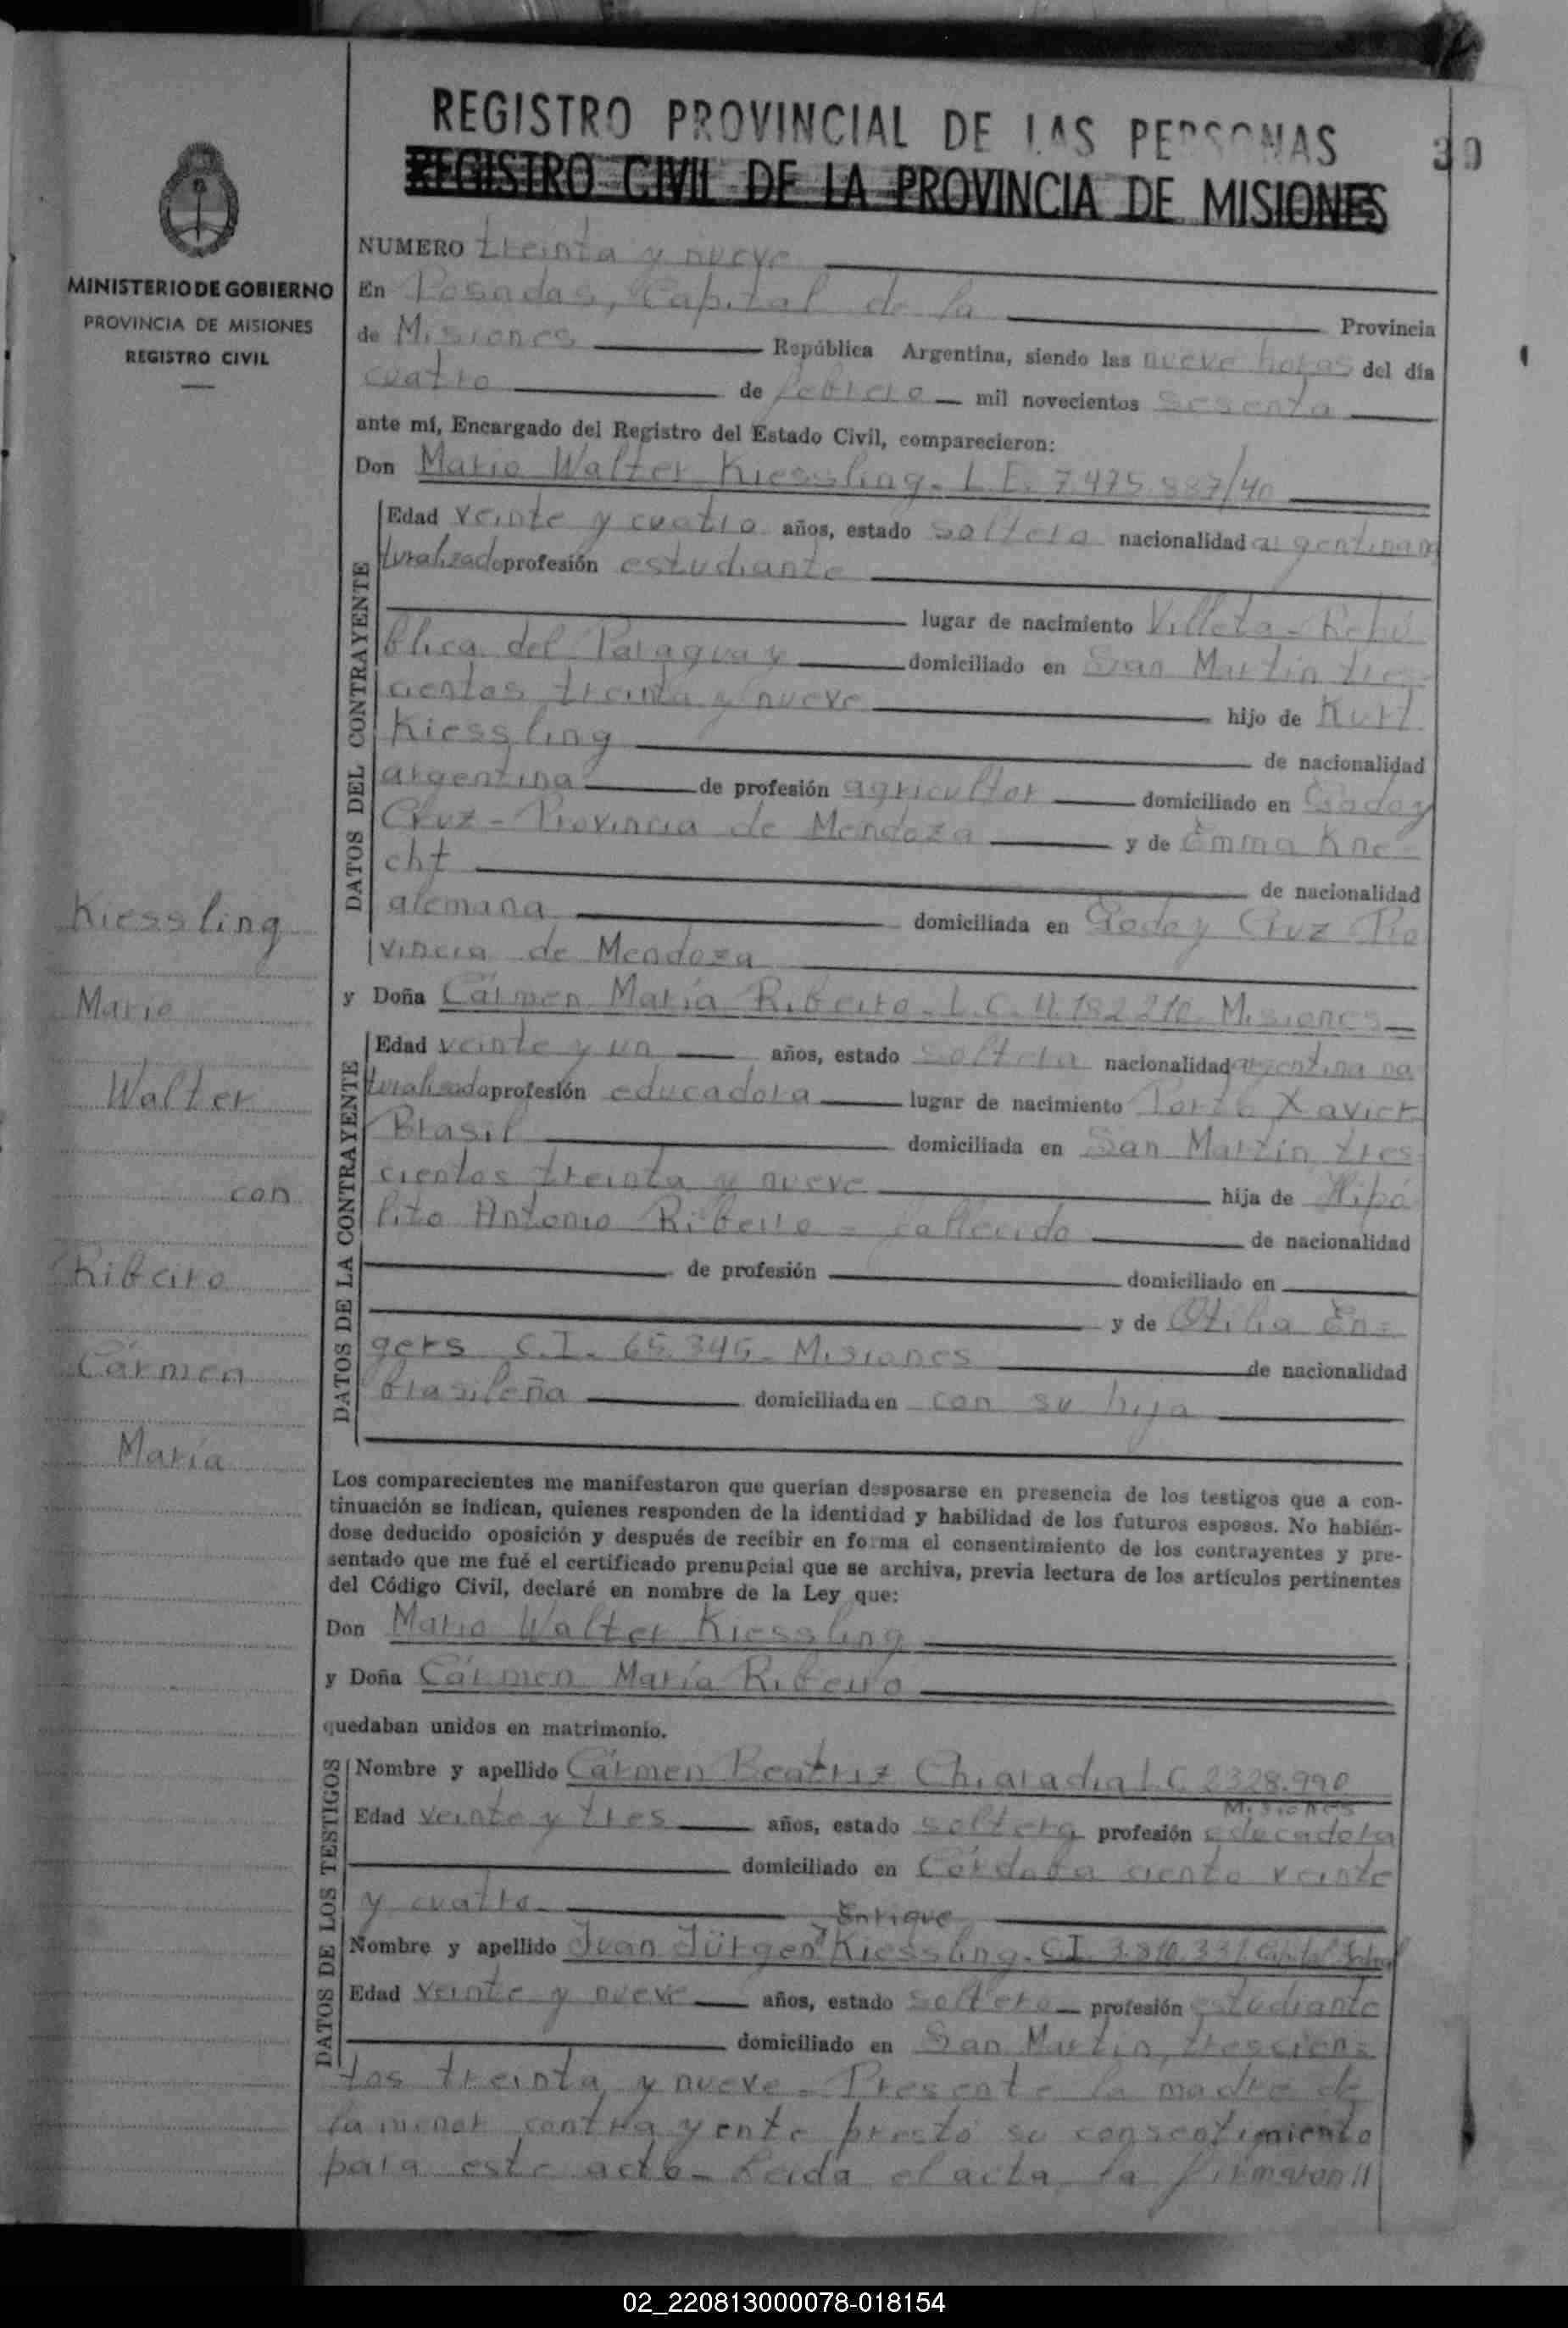 REGISTRO PROVINCIAL DE LAS PERSONAS
39
REGISTRO CIVIL DE LA PROVINCIA DE MISIONES
MINISTERIO DE GOBIERNO
PROVINCIA DE MISIONES
REGISTRO CIVIL
NUMERO treinta y nueve
En Posadas, Capital de la Provincia
de Misiones República Argentina, siendo las nueve horas del día
cuatro de febrero mil novecientos sesenta
ante mí, Encargado del Registro del Estado Civil, comparecieron:
Don Mario Walter Kiessling - L.E. 7.475.887/40
DATOS DEL CONTRAYENTE
Edad veinte y cuatro años, estado soltero nacionalidad argentina na
turalizado profesión estudiante
lugar de nacimiento Villeta - Repú
blica del Paraguay domiciliado en San Martín tres
cientos treinta y nueve hijo de Kurt
Kiessling de nacionalidad
argentina de profesión agricultor domiciliado en Godoy
Cruz - Provincia de Mendoza y de Emma Kne-
cht de nacionalidad
alemana domiciliada en Godoy Cruz Pro
vincia de Mendoza
y Doña Cármen María Ribeiro - L.C. 4.182.210 - Misiones
DATOS DE LA CONTRAYENTE
Edad veinte y un años, estado soltera nacionalidad argentina na
turalizada profesión educadora lugar de nacimiento Porto Xavier
Brasil domiciliada en San Martín tres
cientos treinta y nueve hija de Hipó
lito Antonio Ribeiro - fallecido de nacionalidad
de profesión domiciliado en
y de Otilia En=
gers C.I. 65.345 - Misiones de nacionalidad
brasileña domiciliada en con su hija
Los comparecientes me manifestaron que querían desposarse en presencia de los testigos que a con-
tinuación se indican, quienes responden de la identidad y habilidad de los futuros esposos. No habién-
dose deducido oposición y después de recibir en forma el consentimiento de los contrayentes y pre-
sentado que me fué el certificado prenupcial que se archiva, previa lectura de los artículos pertinentes
del Código Civil, declaré en nombre de la Ley que:
Don Mario Walter Kiessling
y Doña Cármen María Ribeiro
quedaban unidos en matrimonio.
DATOS DE LOS TESTIGOS
Nombre y apellido Cármen Beatriz Chiaradia L.C. 2328.990
Misiones
Edad veinte y tres años, estado soltera profesión educadora
domiciliado en Córdoba ciento veinte
y cuatro
Enrique
Nombre y apellido Juan Jürgen Kiessling - C.I. 3.810.331 Capital
Edad veinte y nueve años, estado soltero profesión estudiante
domiciliado en San Martín, trescien=
tos treinta y nueve - Presente la madre de
la menor contrayente prestó su consentimiento
para este acto - Leida el acta, la firmaron//
Kiessling
Mario
Walter
con
Ribeiro
Cármen
María
02_220813000078-018154